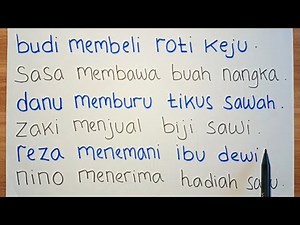 budi membeli roti keju.
sasa membawa buah nangka.
danu memburu tikus sawah.
zaki menjual biji sawi.
reza menemani ibu dewi
nino menerima hadiah